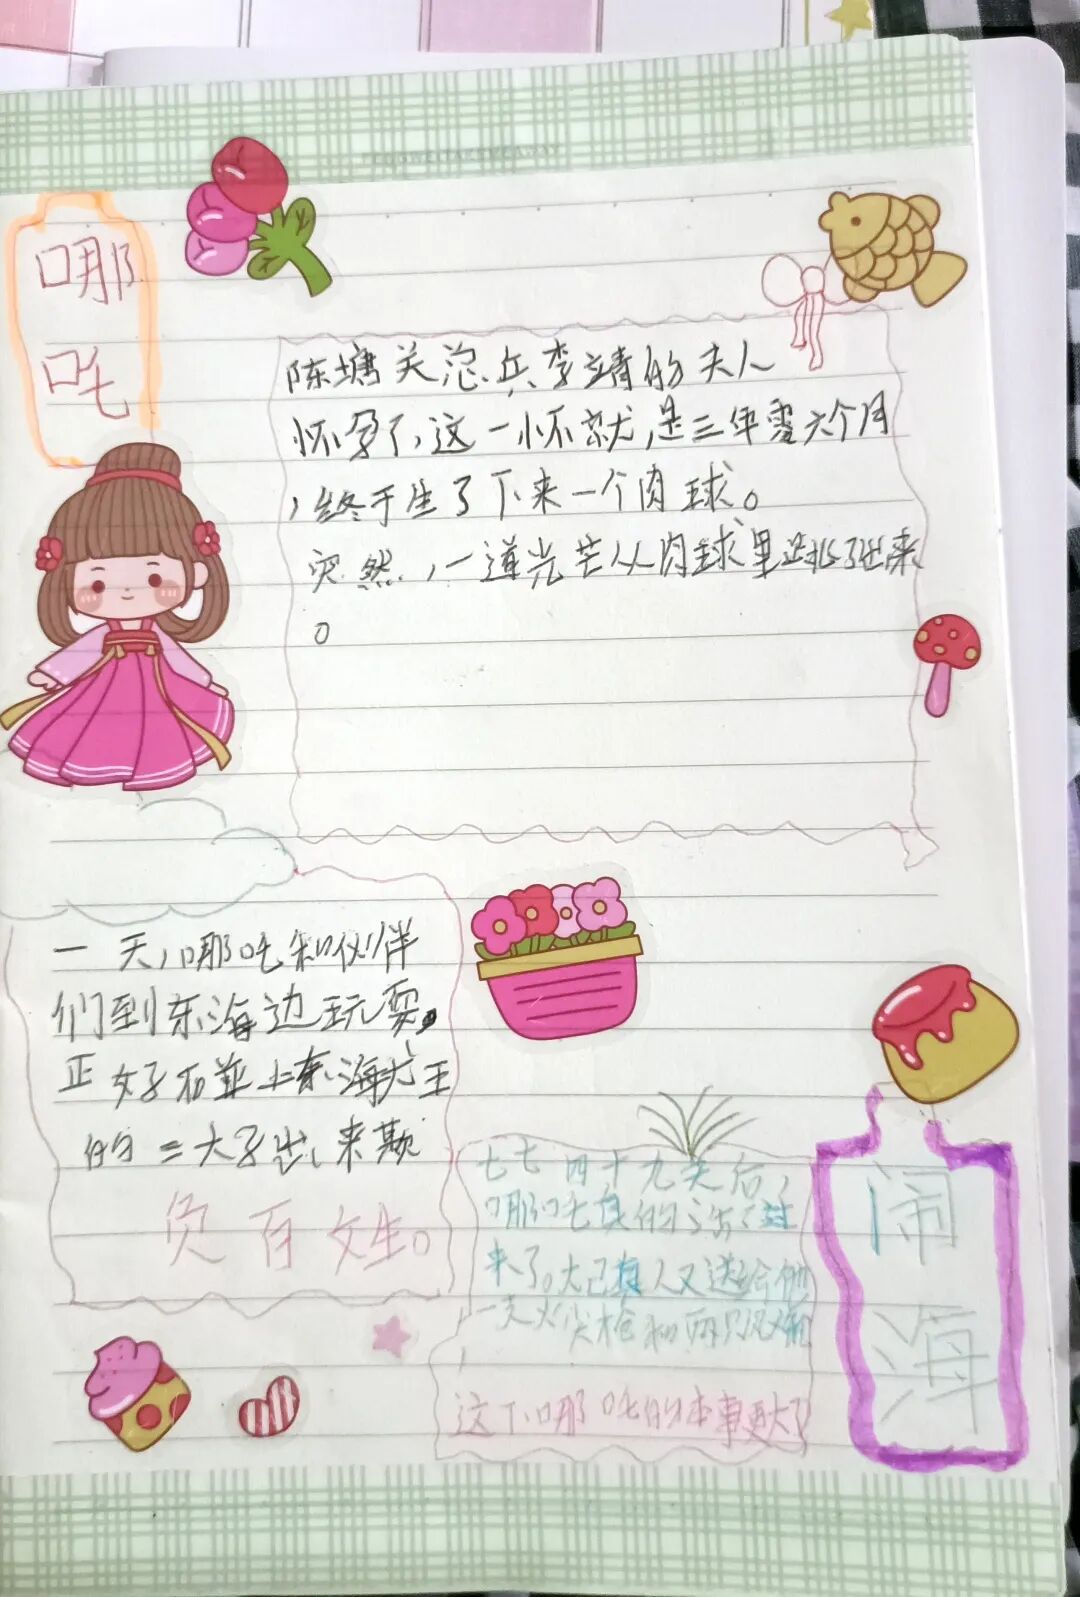 哪
吒
陈塘关总兵李靖的夫人
怀孕了,这一怀就是三年零六个月
,终于生了下来一个肉球。
突然,一道光芒从肉球里迸了出来
。
一天,哪吒和伙伴
们到东海边玩耍,
正好碰上东海龙王
的三太子出来欺
负百姓。
七七四十九天后,
哪吒真的活了过
来了。太乙真人又送给他
一支火尖枪和两只风火轮
,
这下哪吒的本事更大了
闹
海